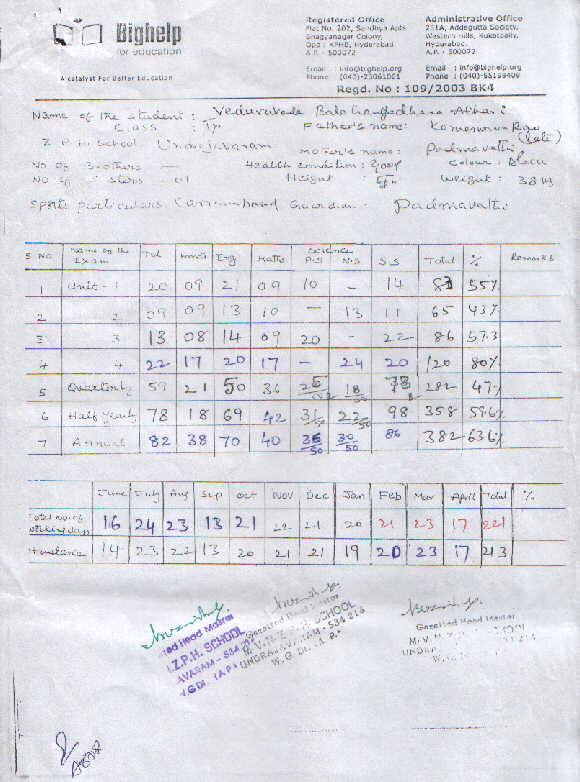 Bighelp
for education
A catalyst For Better Education
Registered Office
Flat No. 202, Sandhya Apts
Bhagyanagar Colony,
Opp : KPHB, Hyderabad
A.P. - 500072
Email : info@bighelp.org
Phone : (040)-23061001
Administrative Office
251A, Addagutta Society,
Western Hills, Kukatpally,
Hyderabad.
A.P. - 500072
Email : info@bighelp.org
Regd. No : 109/2003 BK4
Name of the student :
Class : Father's name:
Z P H School Undrajavaram Mother's name: Padmavathi
No of Brothers — Health condition : good Colour :
No of Sisters - 01 Height : Weight : 38 kg
Sports particulars Guardian : Padmavathi
S No Name of the Exam Tel Hindi Eng Maths Science P.S N.S S.S Total % Remarks
1 Unit - 1 20 09 21 09 10 - 14 83 55%
2 2 09 09 13 10 - 13 11 65 43%
3 3 13 08 14 09 20 - 22 86 57.3
4 4 22 17 20 17 - 24 20 120 80%
5 Quarterly 59 21 50 36 282 47%
6 Half Yearly 78 18 69 42 31/50 22/50 98 358 59.6%
7 Annual 82 38 70 40 36/50 30/50 86 382 63.6%
June July Aug Sep Oct Nov Dec Jan Feb Mar April Total %
Total No of working days 16 24 23 13 21 22 21 20 21 23 17 221
Attendance 14 23 22 13 20 21 21 19 20 23 17 213
Gazetted Head Master
Z.P.H. SCHOOL
Gazetted Head Master
M.V.N.Z.P.H. SCHOOL
UNDRAJAVARAM - 534 216
W.G. Dt.
Gazetted Head Master